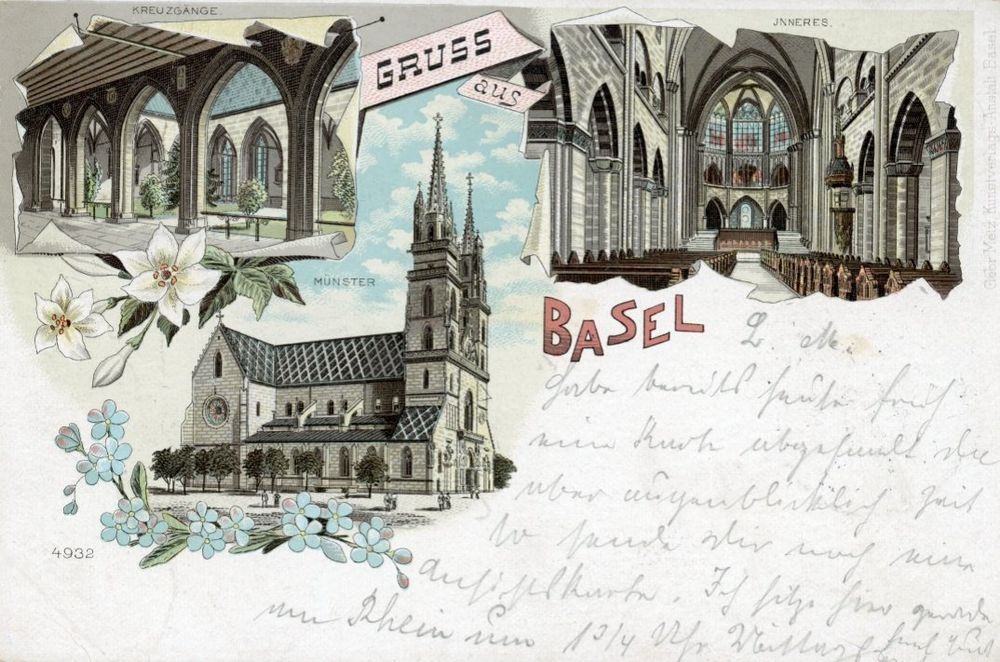 KREUZGÄNGE.
JNNERES.
GRUSS
aus
MÜNSTER
BASEL
Gebr. Metz, Kunstverlags-Anstalt Basel.
L. M.
Habe bereits heute früh
eine Karte abgesandt, da
aber augenblicklich Zeit
so sende Dir noch eine
Ansichtskarte. Ich sitze hier gerade
am Rhein um 1 3/4 Uhr Mittag
4932